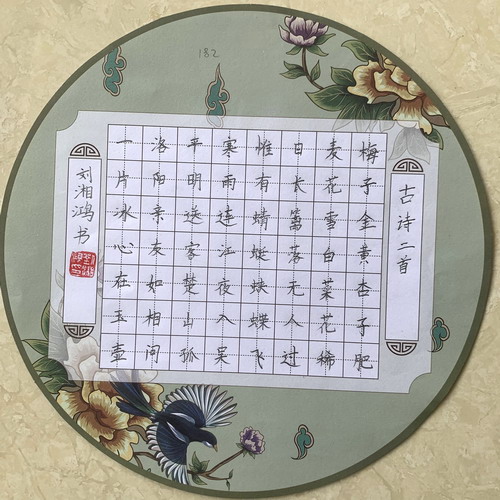 182
古诗二首
梅子金黄杏子肥
麦花雪白菜花稀
日长篱落无人过
惟有蜻蜓蛱蝶飞
寒雨连江夜入吴
平明送客楚山孤
洛阳亲友如相问
一片冰心在玉壶
刘湘鸿书